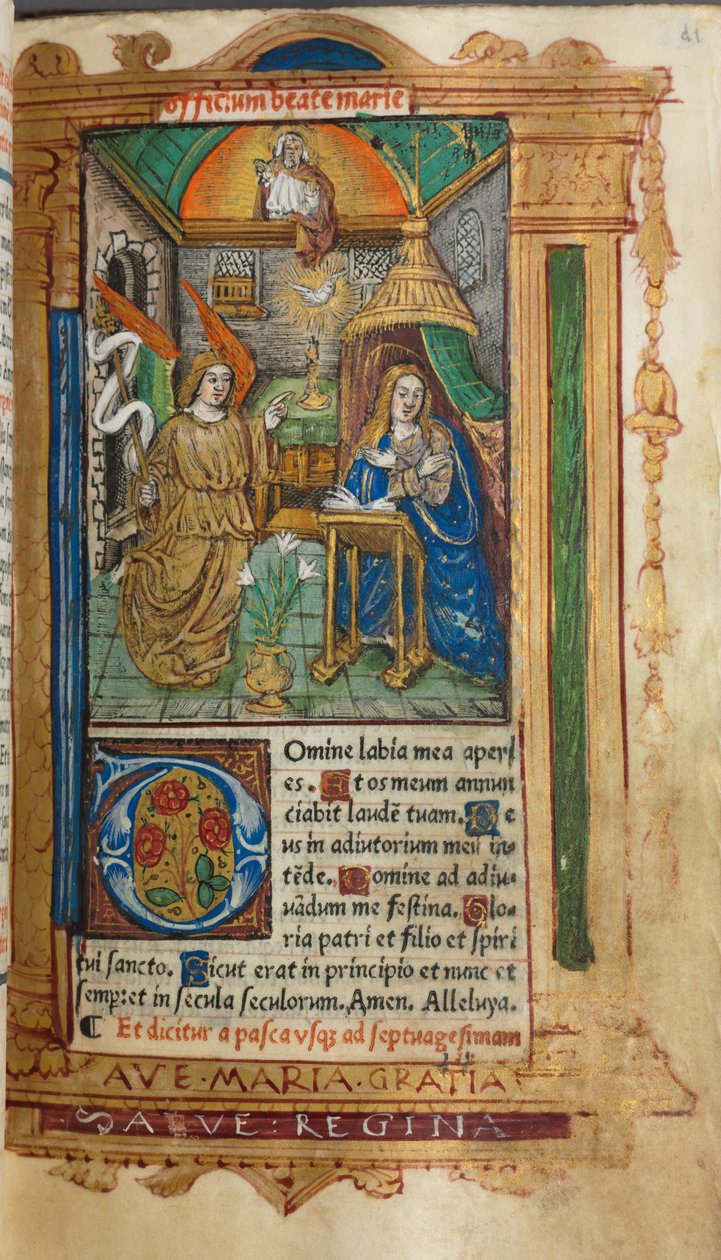 d1
officium beate marie
Domine labia mea aperi
es. Et os meum annun
ciabit laudē tuam. De
us in adiutorium meū in-
tēde. Domine ad adiu-
uādum me festina. Glo-
ria patri et filio et spiri
tui sancto. Sicut erat in principio et nunc et
semp: et in secula seculorum. Amen. Alleluya.
¶ Et dicitur a pasca vsqꝫ ad septuagesimam
AVE·MARIA·GRATIA
SALVE: REGINA